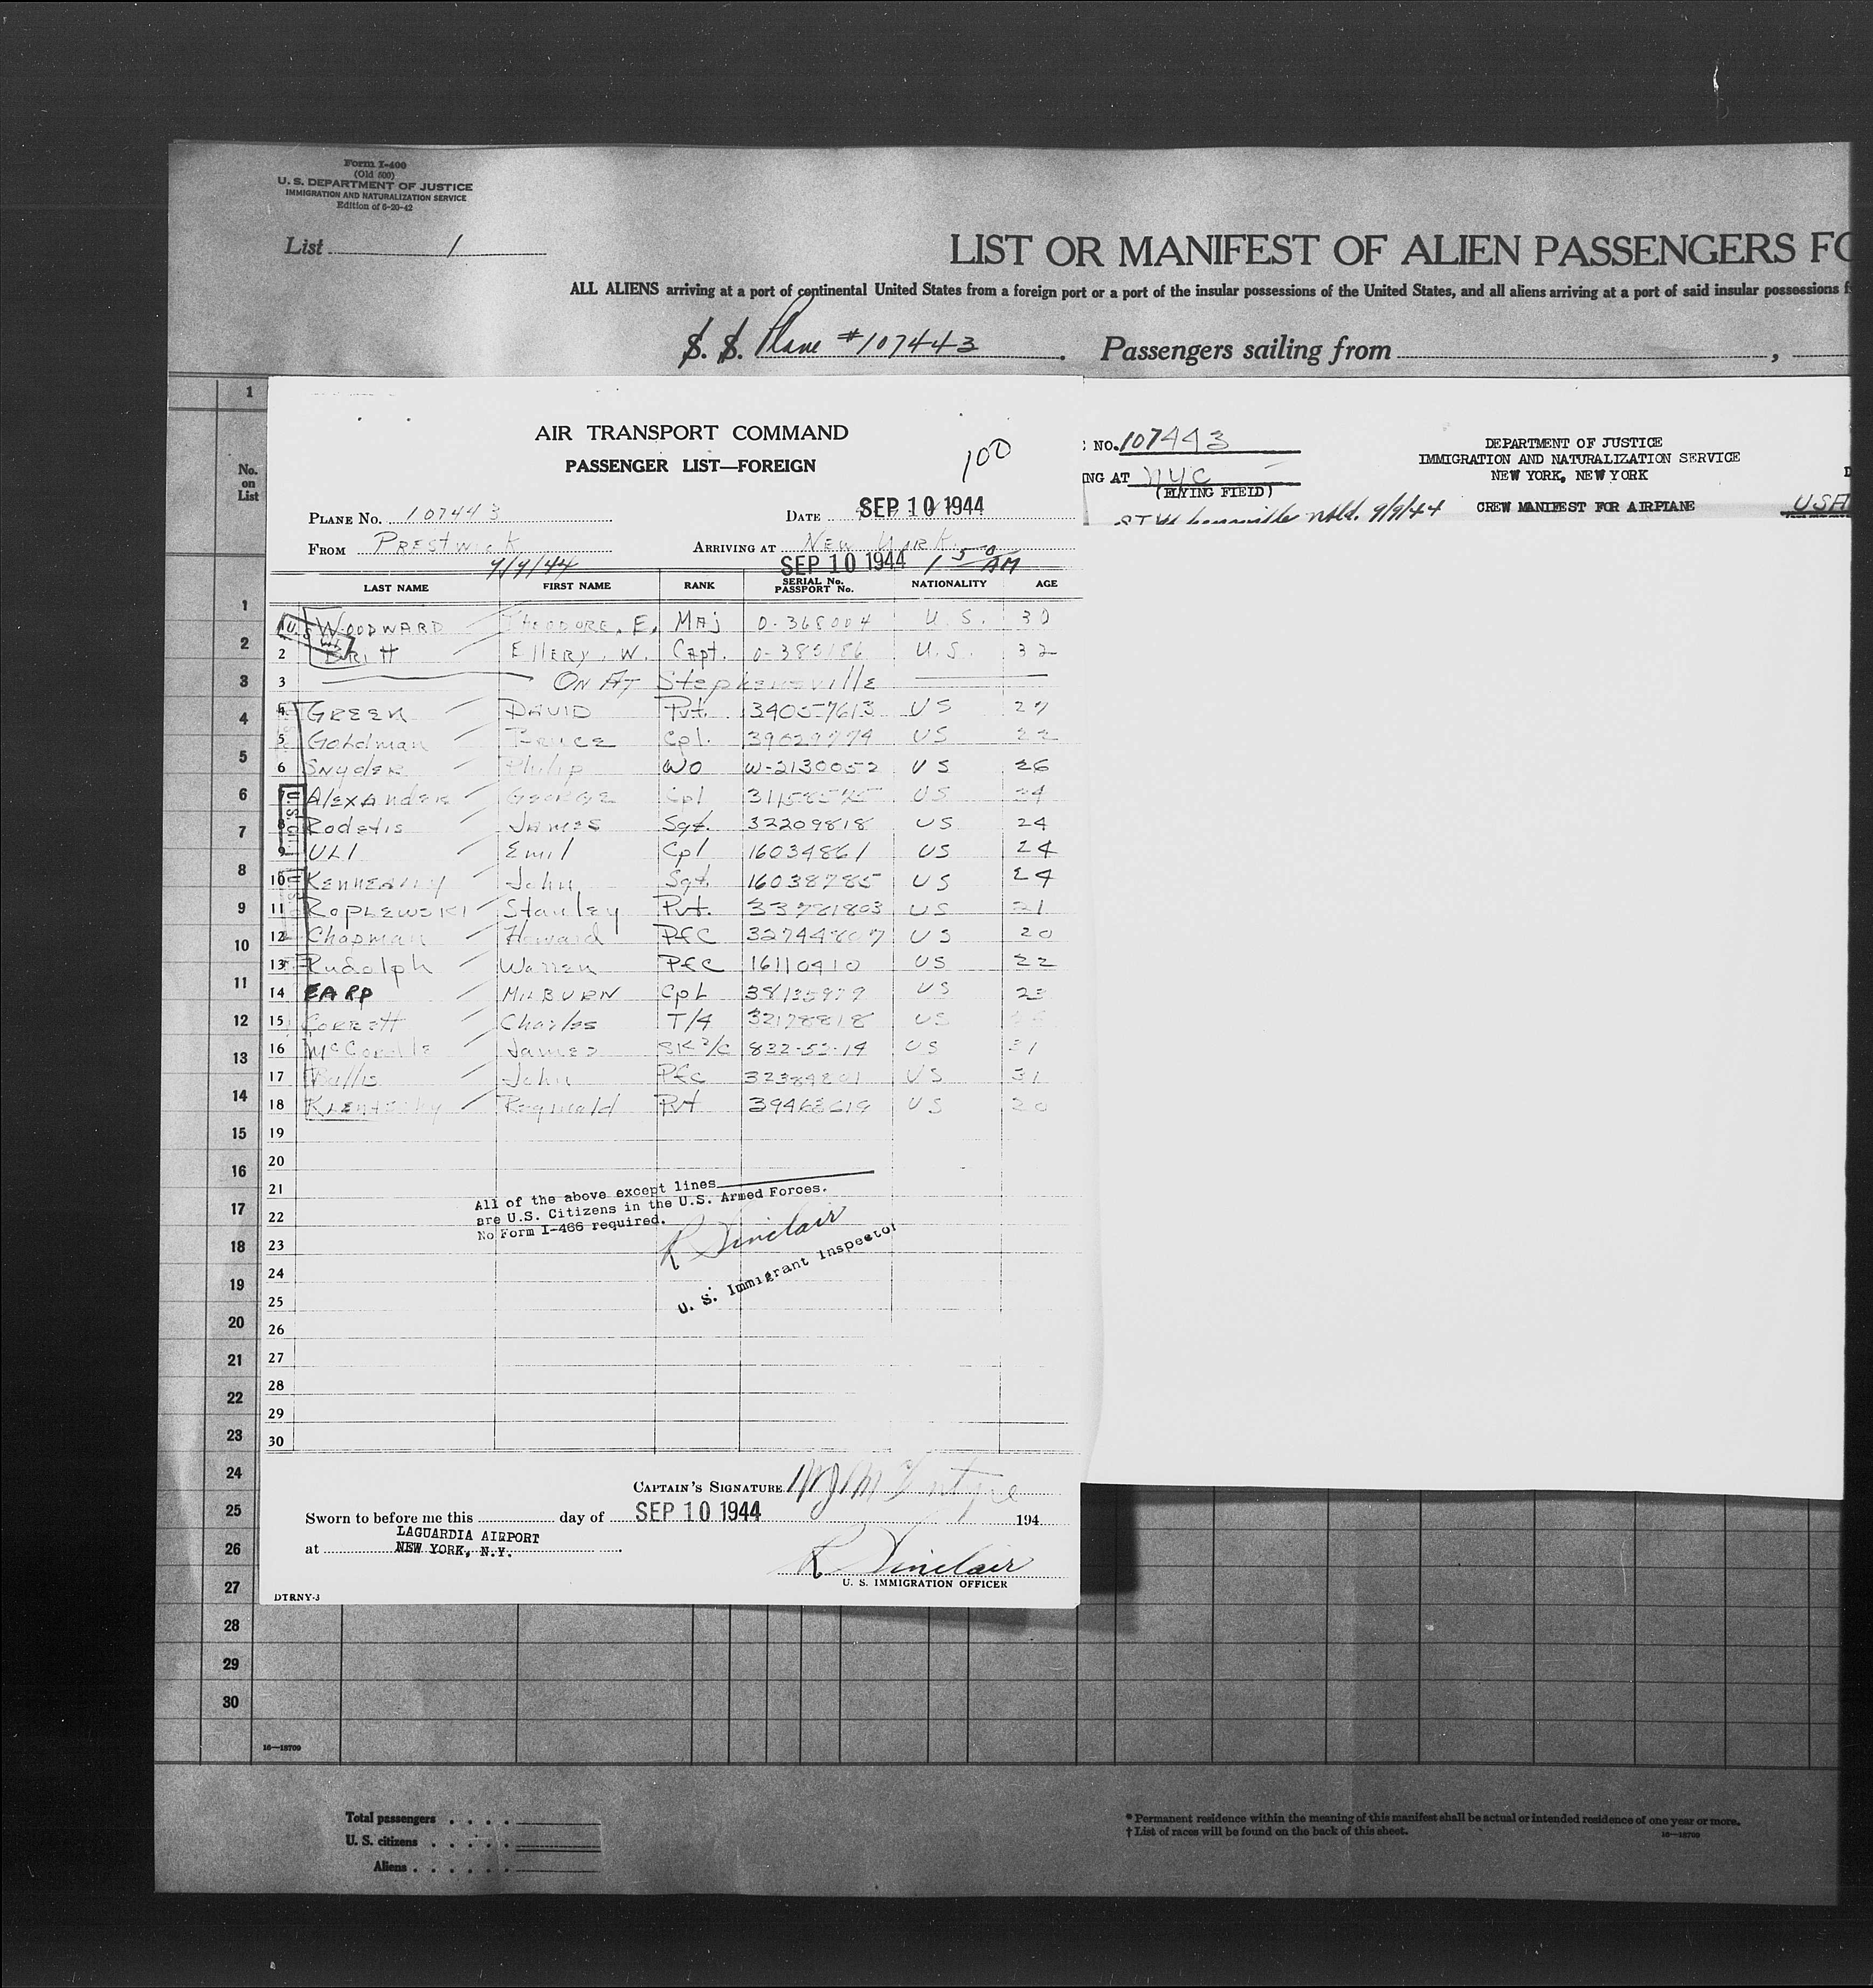 Form I-400
(Old 500)
U. S. DEPARTMENT OF JUSTICE
IMMIGRATION AND NATURALIZATION SERVICE
Edition of 6-20-42
List 1
LIST OR MANIFEST OF ALIEN PASSENGERS FO
ALL ALIENS arriving at a port of continental United States from a foreign port or a port of the insular possessions of the United States, and all aliens arriving at a port of said insular possessions f
S. S. Plane #107443. Passengers sailing from ,
1
No. on List
AIR TRANSPORT COMMAND
PASSENGER LIST—FOREIGN
100
PLANE No. 107443 DATE SEP 10 1944
FROM PRESTWICK ARRIVING AT NEW YORK
9/9/44 SEP 10 1944 1 50 AM
LAST NAME FIRST NAME RANK SERIAL No. PASSPORT No. NATIONALITY AGE
1 WOODWARD THEODORE. E. MAJ 0-368004 U.S. 30
2 BRITT ELLERY. W. Capt. U.S. 32
3 ON AT Stephensville
4 GREEN DAVID Pvt. 34057613 US 27
5 Goldman Bruce Cpl. 39029774 US 22
6 SNYDER Philip WO W-2130052 US 26
7 ALEXANDER GEORGE Cpl US 24
8 Rodetis JAMES Sgt. 32209818 US 24
9 ULI Emil Cpl 16034861 US 24
10 KENNEALLY John Sgt. 16038785 US 24
11 ROPLEWSKI Stanley Pvt. 33781803 US 21
12 Chapman Howard PFC 32744807 US 20
13 Rudolph Warren PFC 16110410 US 22
14 EARP MILBURN CPL 38135979 US 23
15 CORRETT Charles T/4 32178818 US
16 James SK 2/c 832-52-14 US 31
17 John Pfc US 31
18 Reginald Pvt 39463619 US 20
19
20
21
22
23
24
25
26
27
28
29
30
All of the above except lines
are U.S. Citizens in the U.S. Armed Forces.
No Form I-466 required.
R Sinclair
U. S. Immigrant Inspector
CAPTAIN'S SIGNATURE W J McIntyre
Sworn to before me this day of SEP 10 1944 194
LAGUARDIA AIRPORT
at NEW YORK, N.Y.
R Sinclair
U. S. IMMIGRATION OFFICER
DTRNY-3
NO. 107443
NG AT NYC
(FLYING FIELD)
DEPARTMENT OF JUSTICE
IMMIGRATION AND NATURALIZATION SERVICE
NEW YORK, NEW YORK
Nfld. 9/9/44 CREW MANIFEST FOR AIRPLANE USA
1
2
3
4
5
6
7
8
9
10
11
12
13
14
15
16
17
18
19
20
21
22
23
24
25
26
27
28
29
30
16—18709
Total passengers
U. S. citizens
Aliens
* Permanent residence within the meaning of this manifest shall be actual or intended residence of one year or more.
† List of races will be found on the back of this sheet.
16—18709